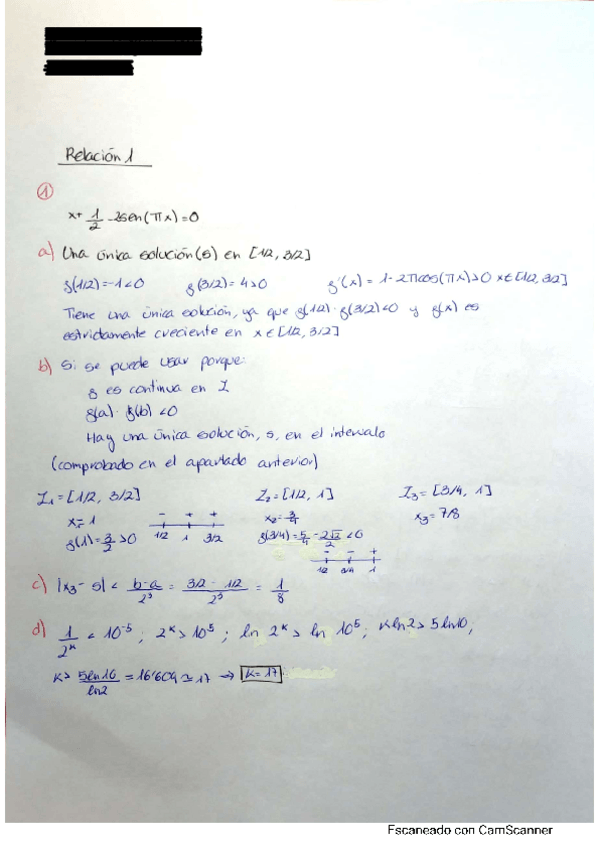 Relación 1
①
x + 1/2 - 2sen(πx) = 0
a) Una única solución(s) en [1/2, 3/2]
f(1/2) = -1 < 0 f(3/2) = 4 > 0 f'(x) = 1 - 2πcos(πx) > 0 x∈[1/2, 3/2]
Tiene una única solución, ya que f(1/2)·f(3/2)<0 y f(x) es
estrictamente creciente en x∈[1/2, 3/2]
b) Si se puede usar porque:
f es continua en I
f(a)·f(b) < 0
Hay una única solución, s, en el intervalo
(comprobado en el apartado anterior)
I₁ = [1/2, 3/2] I₂ = [1/2, 1] I₃ = [3/4, 1]
x₁ = 1 - + + x₂ = 3/4 x₃ = 7/8
f(1) = 3/2 > 0 1/2 1 3/2 f(3/4) = 5/4 - 2√2/2 < 0
- - +
1/2 3/4 1
c) |x₃ - s| < b-a/2³ = 3/2 - 1/2/2³ = 1/8
d) 1/2ᵏ < 10⁻⁵ ; 2ᵏ > 10⁵ ; ln 2ᵏ > ln 10⁵ ; k ln2 > 5 ln10 ;
k > 5ln10/ln2 = 16'609 ≃ 17 → k = 17
Escaneado con CamScanner